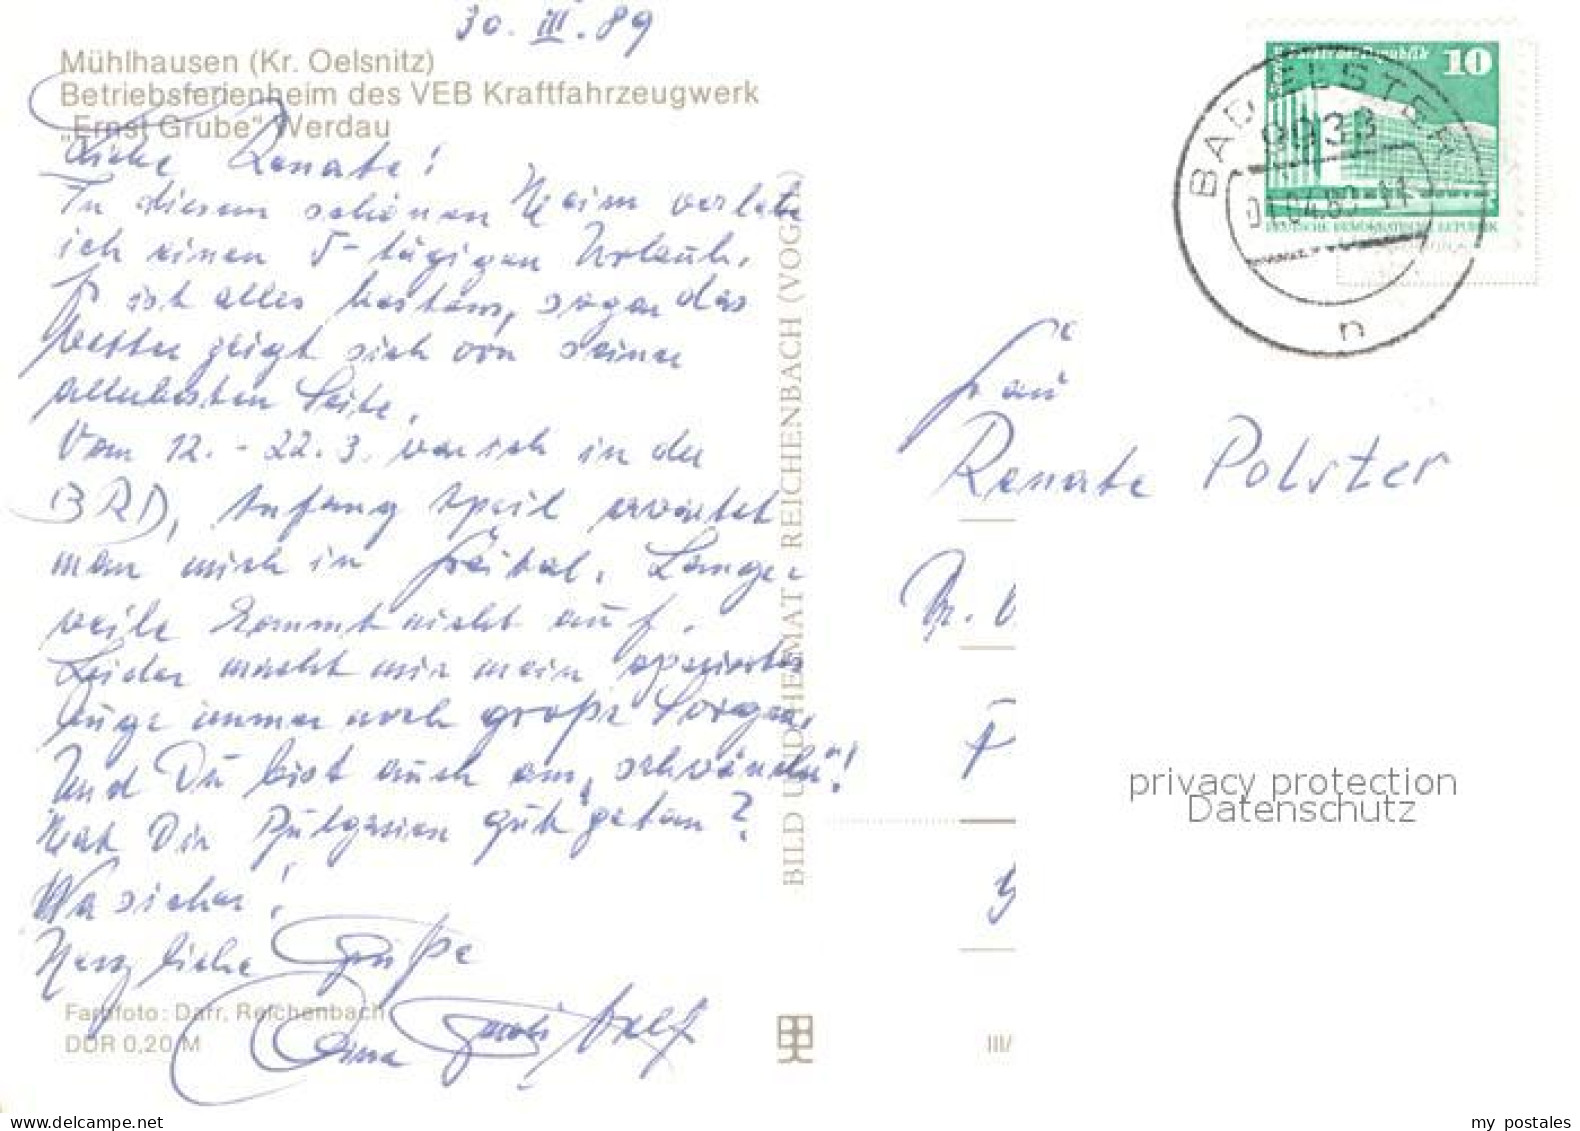 30. III. 89
Mühlhausen (Kr. Oelsnitz)
Betriebsferienheim des VEB Kraftfahrzeugwerk
"Ernst Grube" Werdau
Liebe Renate!
In diesem schönen Heim verlebe
ich einen 5-tägigen Urlaub.
Es ist alles bestens, sogar das
Wetter zeigt sich von seiner
allerbesten Seite.
Vom 12. - 22.3. war ich in der
BRD, Anfang April erwartet
man mich in Freital. Lange-
weile kommt nicht auf.
Leider macht mir mein operiertes
Auge immer noch große Sorgen.
Und Du bist auch am "schwänzeln"!
Hat Dir Bulgarien gut getan?
Na sicher!
Herzliche Grüße
Deine
Farbfoto: Darr, Reichenbach
DDR 0,20 M
BILD UND HEIMAT REICHENBACH (VOGTL)
III/
10
DEUTSCHE DEMOKRATISCHE REPUBLIK
BAD ELSTER
9933
01.04.89-11
n
Frau
Renate Polster
privacy protection
Datenschutz
my postales